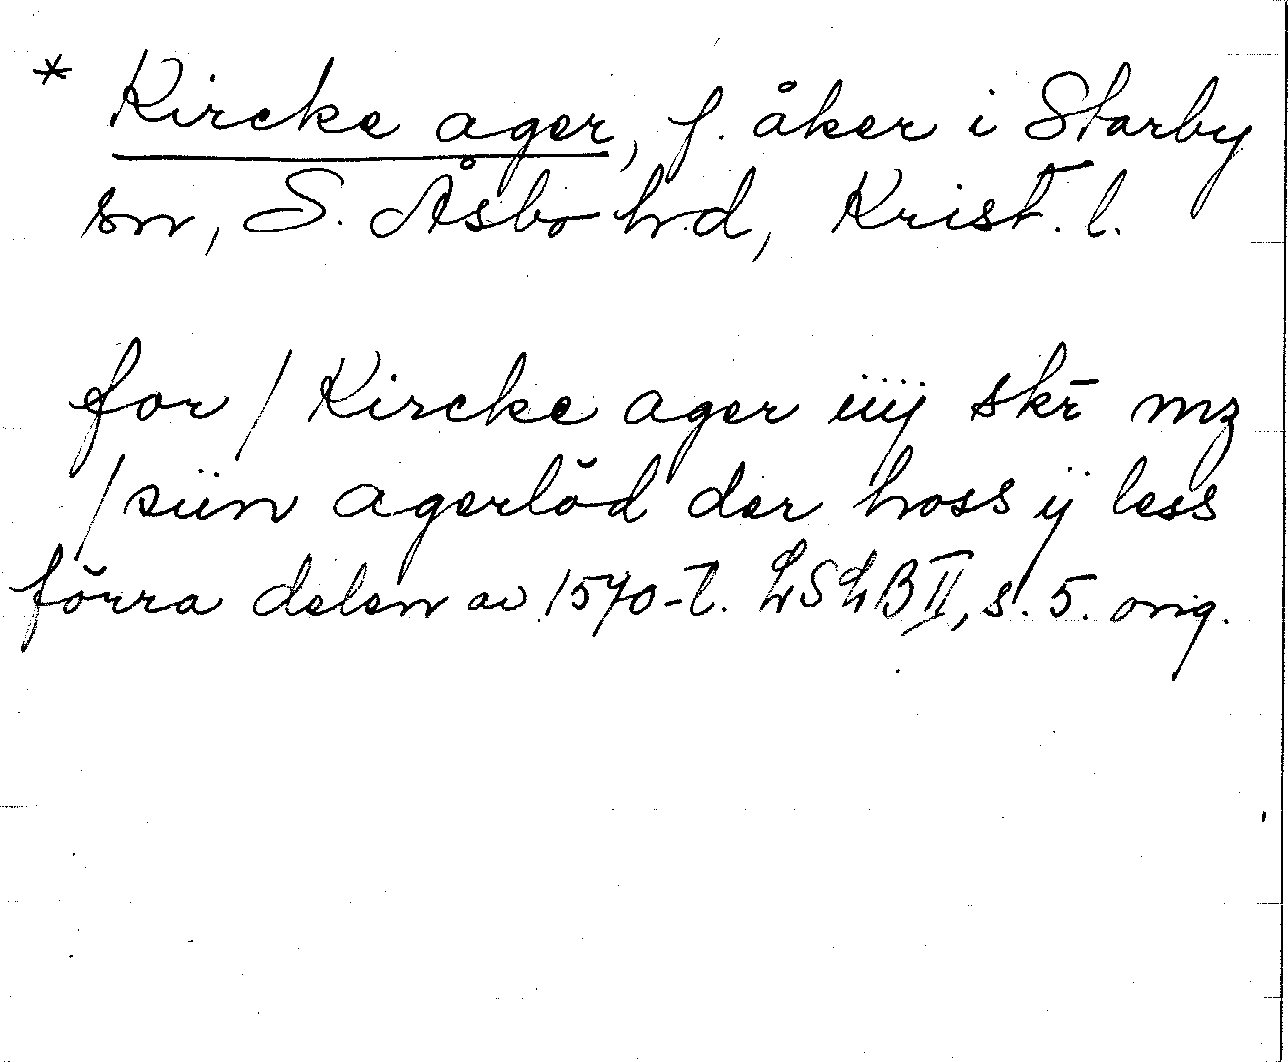 * Kircke ager, f. åker i Starby
sn, S. Åsbo hd, Krist. l.
for / Kircke ager iiij skr̄ mz
/ siin agerlöd der hoss ij less
förra delen av 1570-t. LSLB II, s. 5. orig.